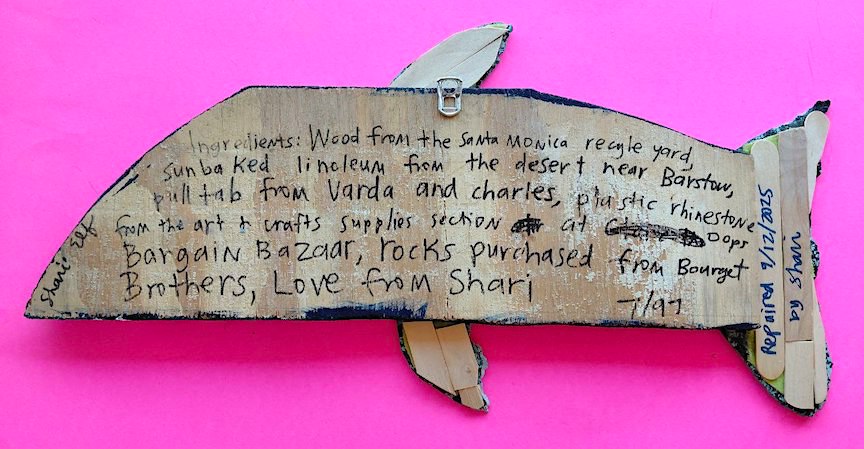 Ingredients: Wood from the Santa Monica recycle yard,
sunbaked linoleum from the desert near Barstow,
pull tab from Varda and Charles, plastic rhinestone
from the art & crafts supplies section at oops
Bargain Bazaar, rocks purchased from Bourget
Brothers, Love from Shari
7/97
Shari Elf
Repaired 9/12/2025
by Shari